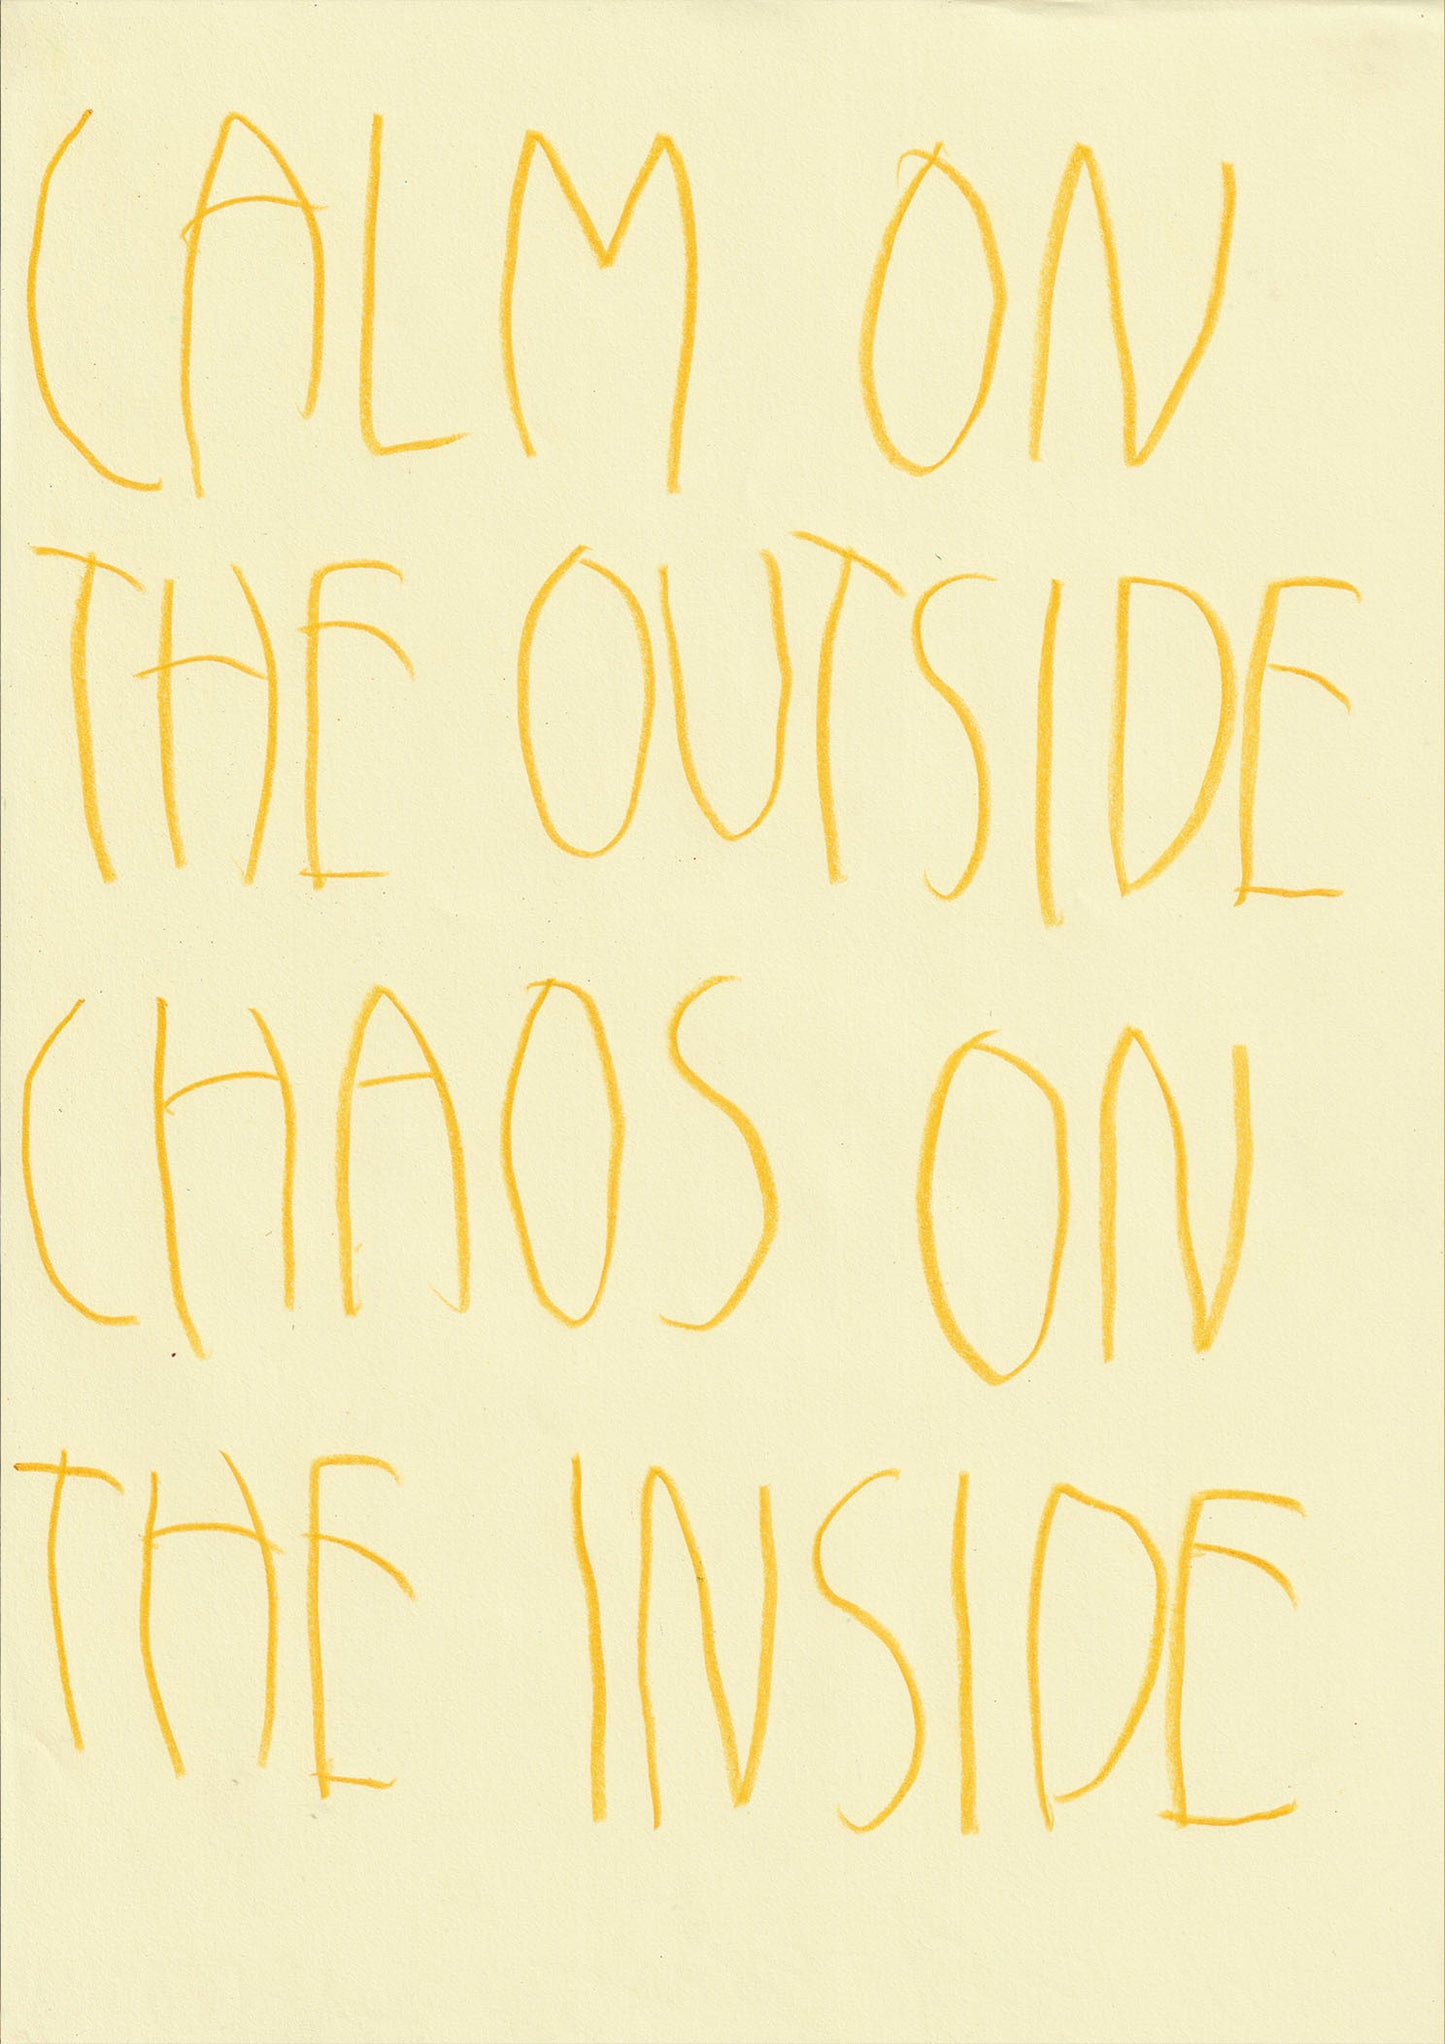 CALM ON
THE OUTSIDE
CHAOS ON
THE INSIDE